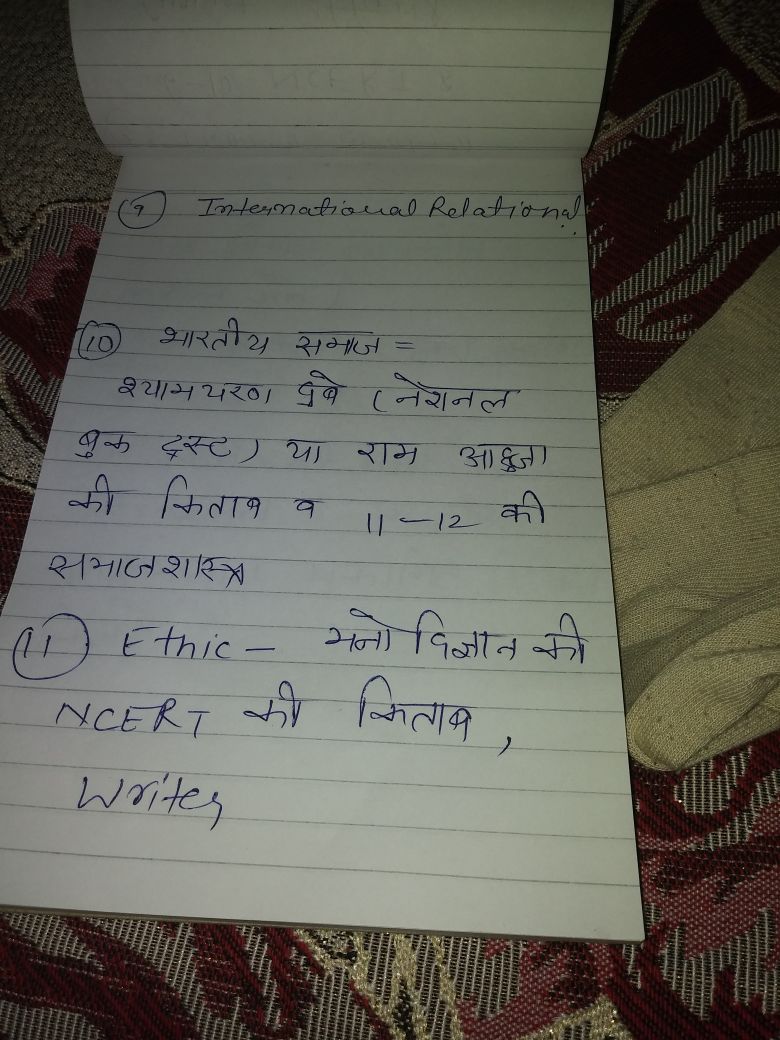 (9) International Relational
(10) भारतीय समाज =
श्यामचरण दुबे (नेशनल
बुक ट्रस्ट) या राम आहूजा
की किताब व 11-12 की
समाजशास्त्र
(11) Ethic - मनोविज्ञान की
NCERT की किताब,
Writer